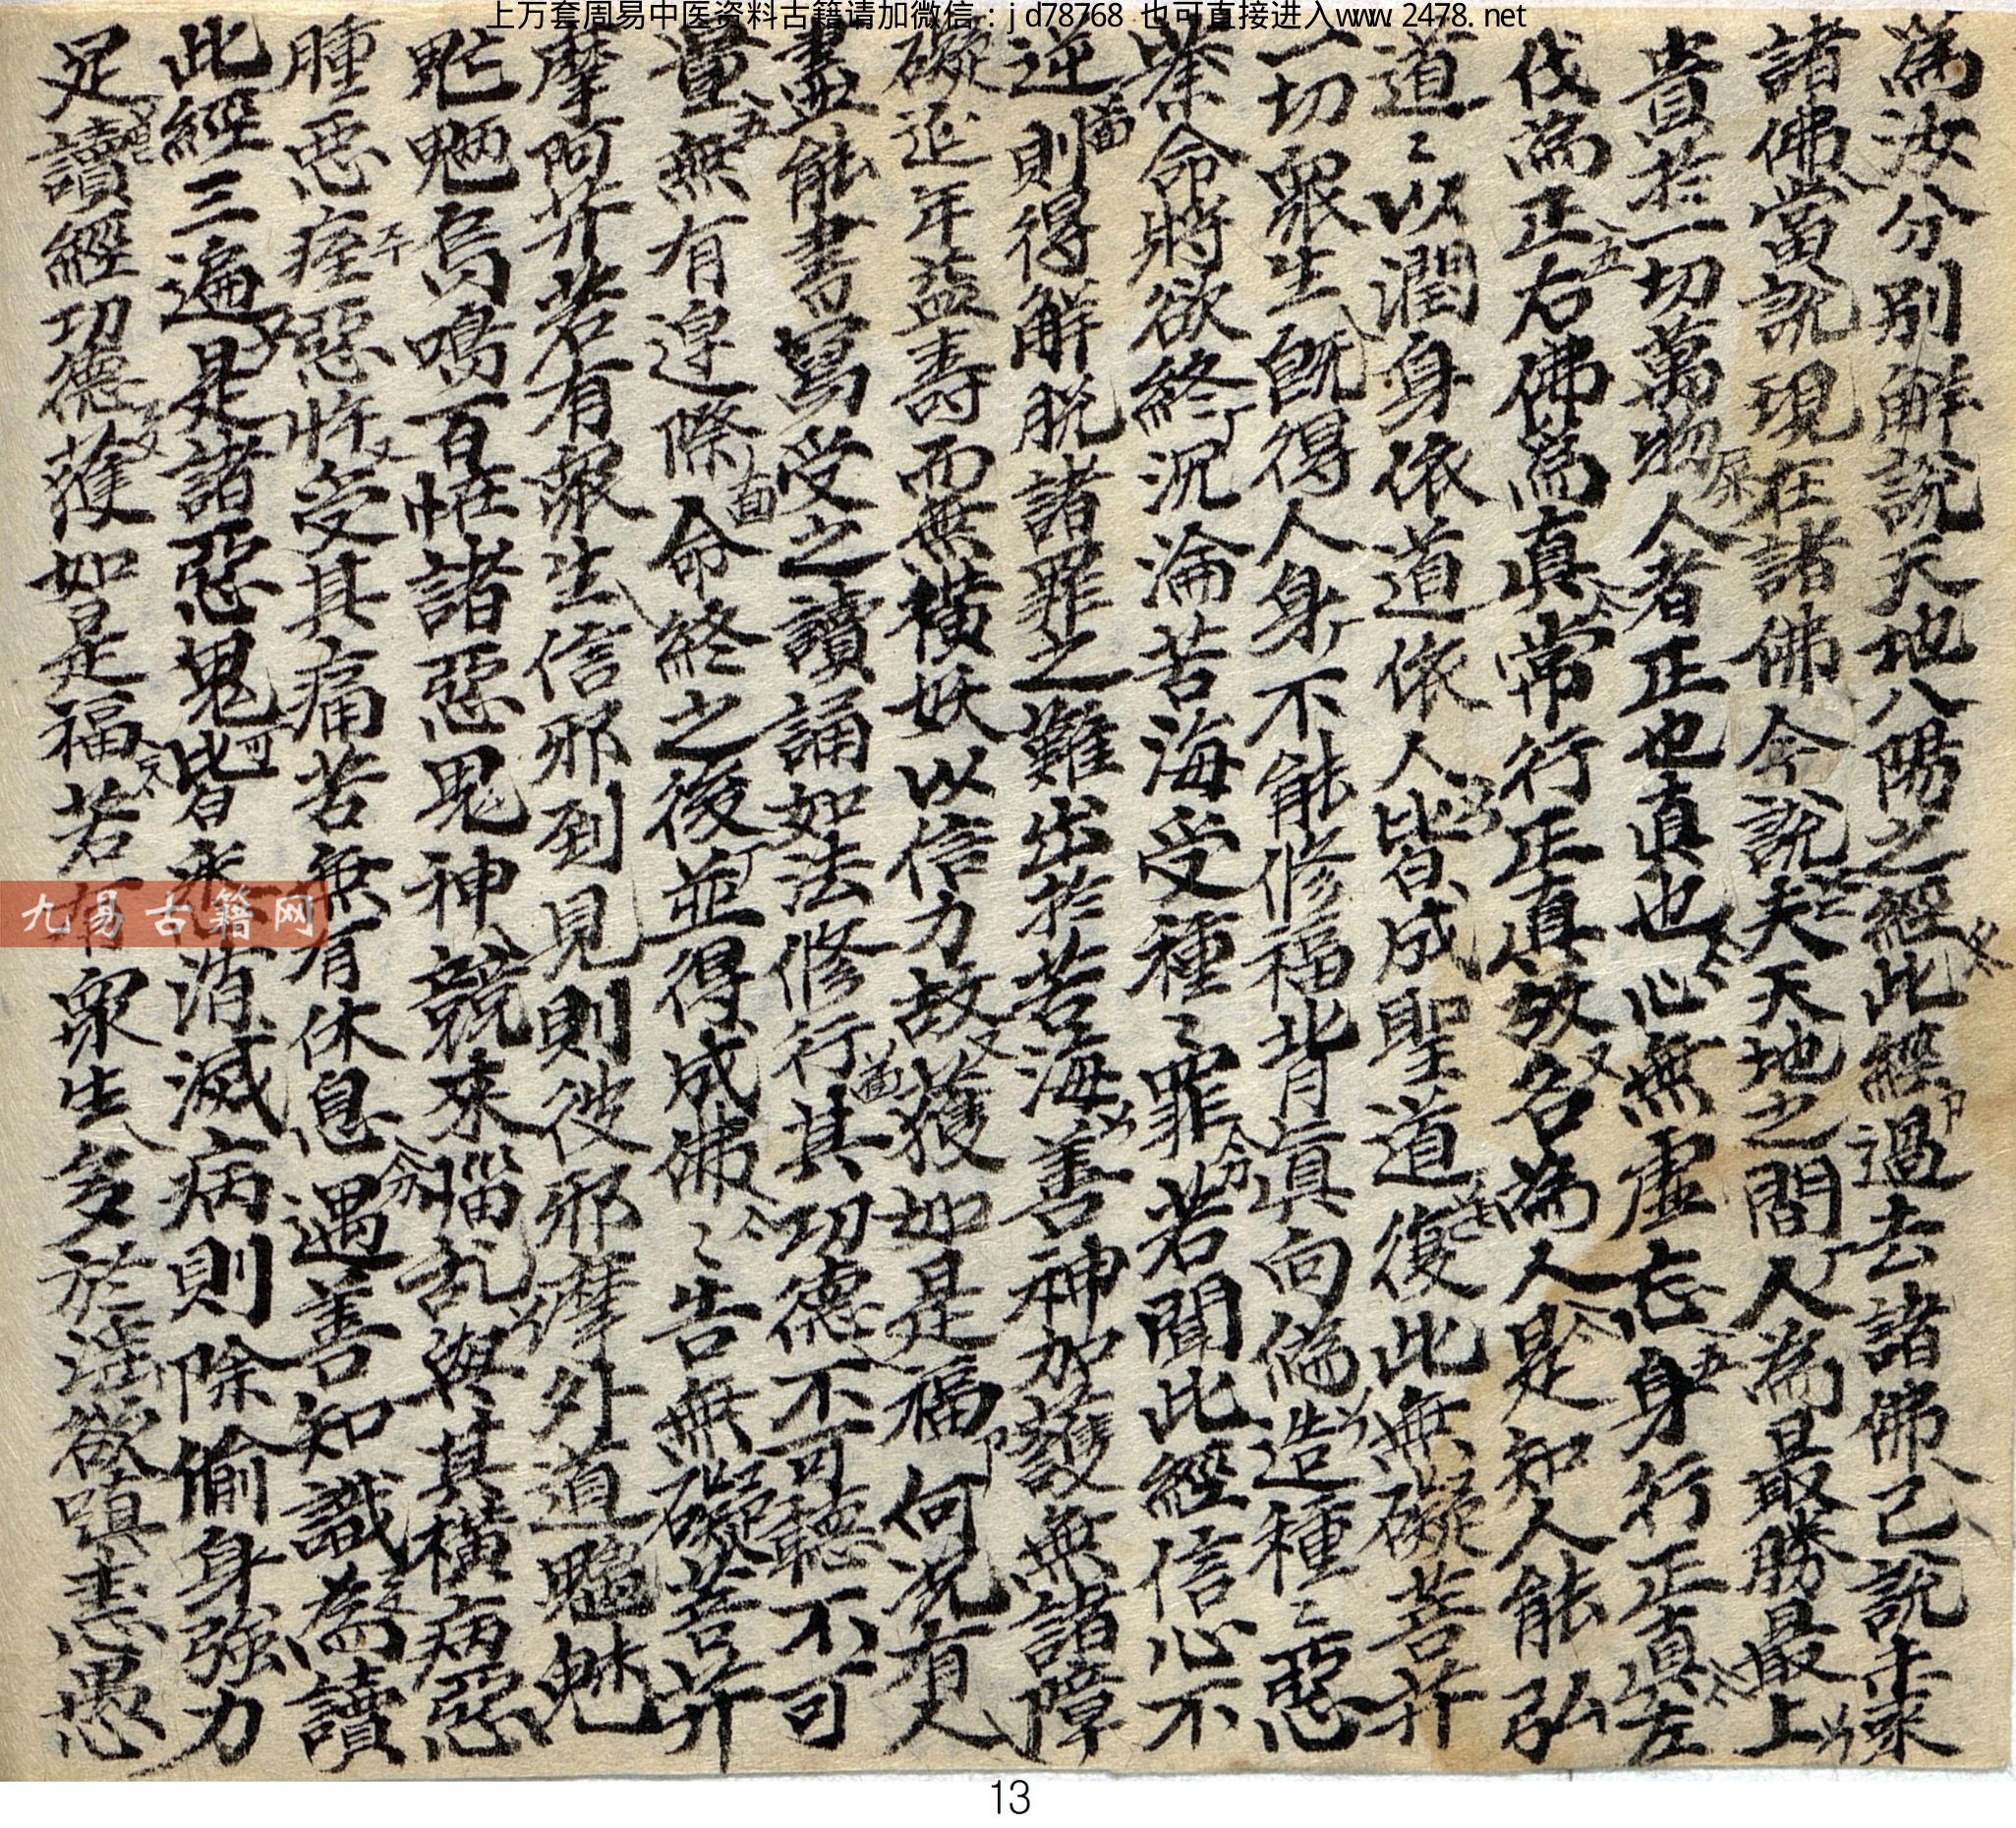 上万套周易中医资料古籍请加微信：jd78768 也可直接进入www.2478.net
為汝分別觧說天地八陽之經此經過去諸佛已說未來
諸佛當說現在諸佛今說夫天地之間人為最勝最上
貴於一切萬物人者正也真也心無虚忘身行正真左
伐為正右佛為真常行正真故名為人是知人能弘
道〻以潤身依道依人皆成聖道復此無礙菩䒑
一切眾生既得人身不能修福背真向偽造種〻惡
業命將欲終沉淪苦海受種〻罪若聞此經信心不
逆則得解脫諸罪之難出於苦海善神加護無諸障
礙延年益壽而無橫妖以信力故獲如是福何况有人
盡能書寫受之讀誦如法修行其功德不可聼不可
量無有邉際命終之後並得成佛〻告無礙菩䒑
摩阿䒑若有衆生信邪到見則彼邪摩外道魍魅
鳥鳴百恠諸惡鬼神競來惱乱與其橫病惡
腫惡疰惡忤受其痛苦無有休息遇善知識為讀
此經三遍是諸惡鬼皆消滅病則除偷身強力
足讀經功德獲如是福若有眾生多於淫欲嗔恚愚
九易古籍网
13